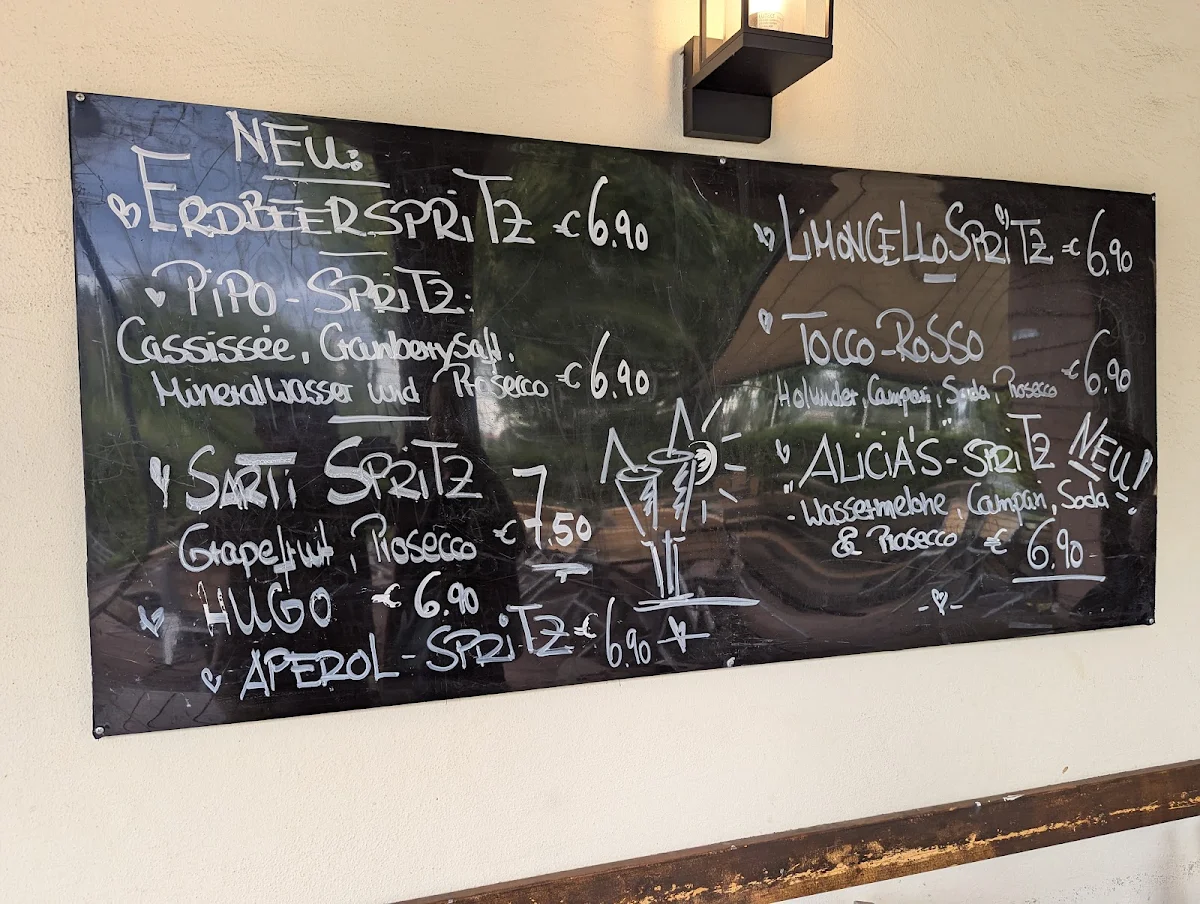 NEU:
ERDBEERSPRITZ € 6.90
PIPO-SPRITZ:
Cassissée, Cranberrysaft,
Mineralwasser und Prosecco € 6.90
SARTI SPRITZ
Grapefruit, Prosecco € 7.50
HUGO € 6.90
APEROL-SPRITZ € 6.90
LIMONCELLO SPRITZ € 6.90
TOCCO-ROSSO
Holunder, Campari, Soda, Prosecco € 6.90
"ALICIA'S"-SPRITZ NEU!
- Wassermelone, Campari, Soda
& Prosecco € 6.90